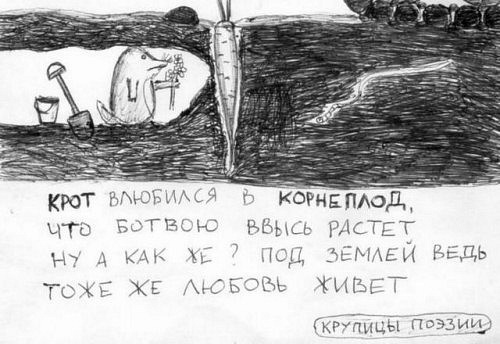 КРОТ ВЛЮБИЛСЯ В КОРНЕПЛОД,
ЧТО БОТВОЮ ВВЫСЬ РАСТЕТ
НУ А КАК ЖЕ? ПОД ЗЕМЛЕЙ ВЕДЬ
ТОЖЕ ЖЕ ЛЮБОВЬ ЖИВЕТ
КРУПИЦЫ ПОЭЗИИ